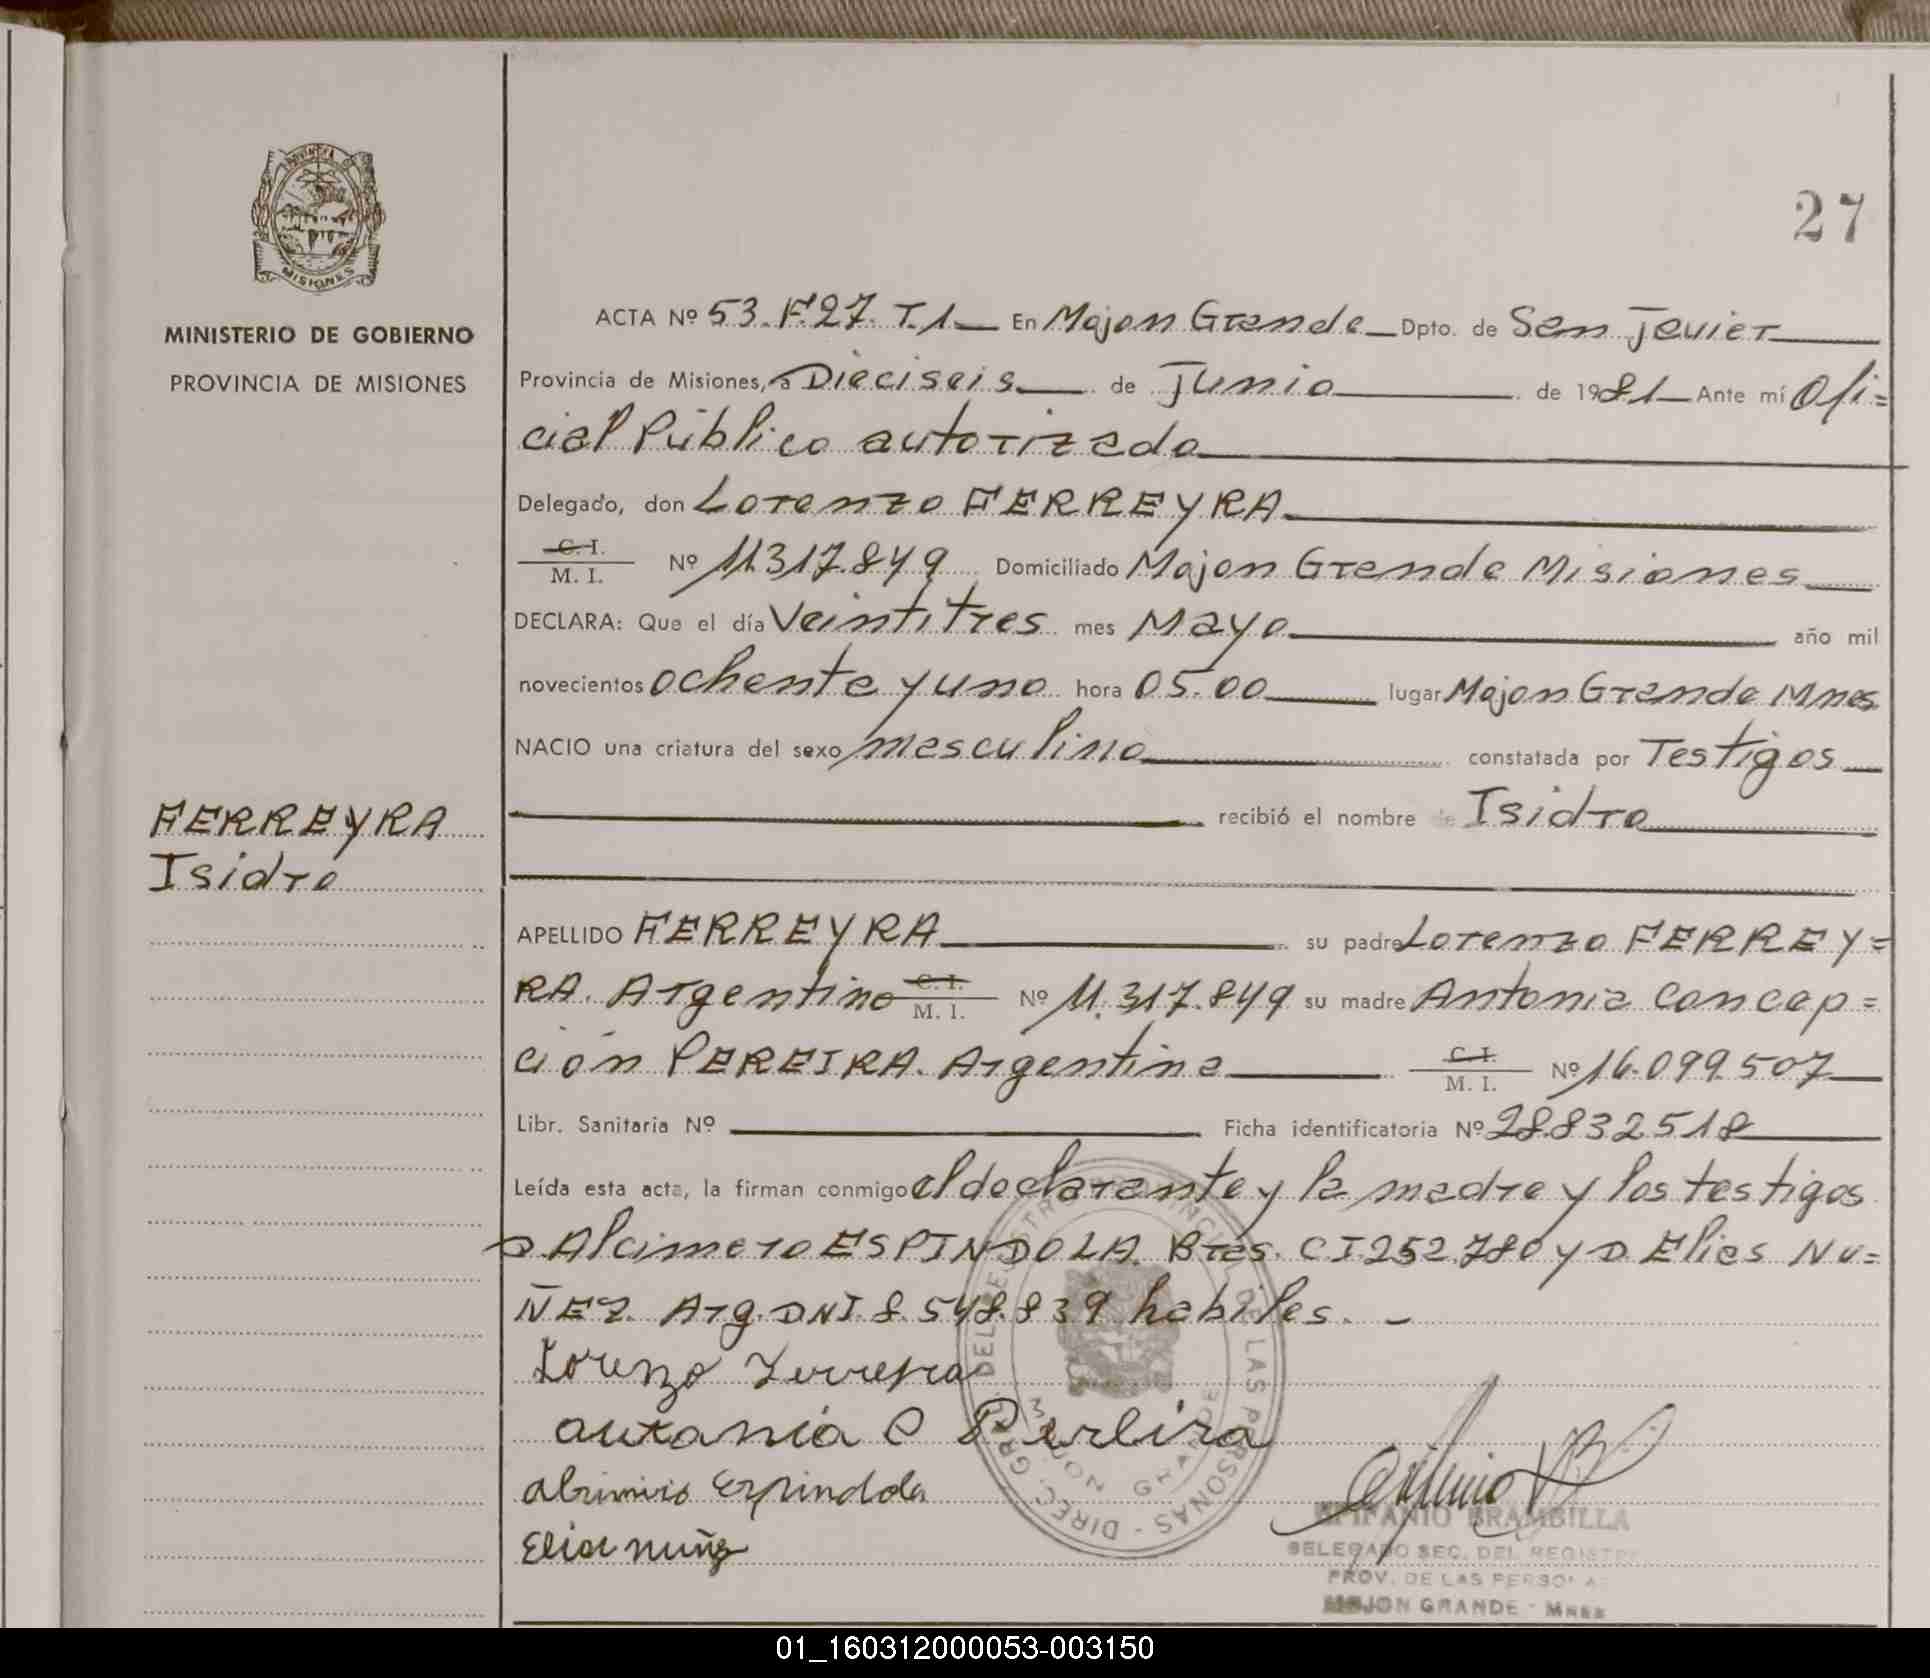 27
PROVINCIA DE
MISIONES
MINISTERIO DE GOBIERNO
PROVINCIA DE MISIONES
FERREYRA
Isidro
ACTA Nº 53. F.27. T.1 En Mojon Grande Dpto. de San Javier
Provincia de Misiones, a Dieciseis de Junio de 1981 Ante mí Ofi=
cial Público autorizado
Delegado, don Lorenzo FERREYRA
C. I.
M. I. Nº 11.317.849 Domiciliado Mojon Grande Misiones
DECLARA: Que el día Veintitres mes Mayo año mil
novecientos ochenta y uno hora 05.00 lugar Mojon Grande Mnes
NACIO una criatura del sexo masculino constatada por Testigos
recibió el nombre de Isidro
APELLIDO FERREYRA su padre Lorenzo FERREY=
RA. Argentino C. I. M. I. Nº 11.317.849 su madre Antonia Concep=
ción PEREIRA. Argentina C. I. M. I. Nº 16.099.507
Libr. Sanitaria Nº Ficha identificatoria Nº 28.832518
Leída esta acta, la firman conmigo el declarante y la madre y los testigos
D. Alcimero ESPINDOLA. Bras. CI.252.780 y D. Elias NU=
ÑEZ. Arg. DNI. 8.548.839 habiles. -
Lorenzo Ferreyra
antania C Pereira
Espindola
Elias nuñez
DEL REGISTRO PROVINCIAL DE LAS PERSONAS - DIREC. GRAL.
MOJON GRANDE
EPIFANIO BRAMBILLA
DELEGADO SEC. DEL REGISTRO
PROV. DE LAS PERSONAS
MOJON GRANDE - MNES
01_160312000053-003150